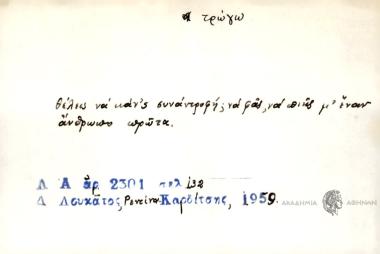 τρώγω
θέλεις νὰ κάν'ς συνάντροφή; νὰ φᾶς, νὰ πιῆς μ' ἕναν
ἄνθρωπο πρῶτα.
Λ Α ἀρ 2301 σελ 132
Δ Λουκᾶτος, Ρεντίνα Καρδίτσης, 1959.
ΑΚΑΔΗΜΙΑ ΑΘΗΝΩΝ